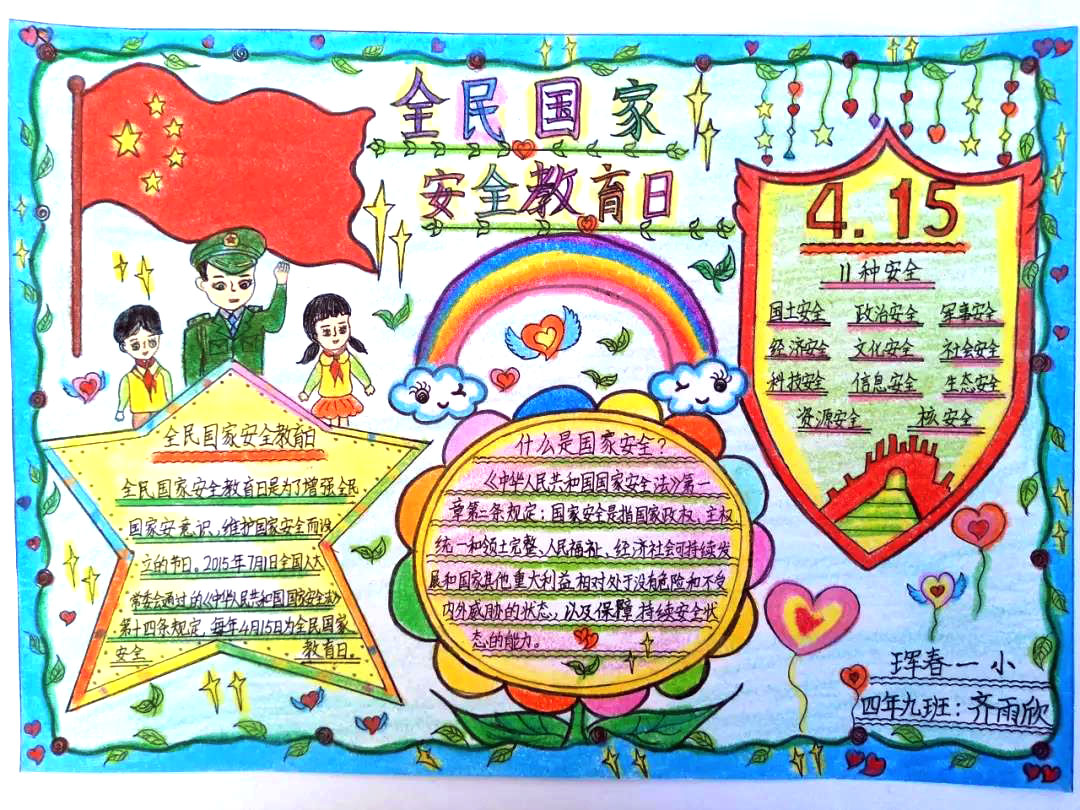 全民国家
安全教育日
4.15
11种安全
国土安全 政治安全 军事安全
经济安全 文化安全 社会安全
科技安全 信息安全 生态安全
资源安全 核安全
全民国家安全教育日
全民国家安全教育日是为了增强全民
国家安意识、维护国家安全而设
立的节日。2015年7月1日全国人大
常委会通过的《中华人民共和国国家安全法》
第十四条规定,每年4月15日为全民国家
安全 教育日。
什么是国家安全?
《中华人民共和国国家安全法》第一
章第二条规定:国家安全是指国家政权、主权
统一和领土完整、人民福祉、经济社会可持续发
展和国家其他重大利益相对处于没有危险和不受
内外威胁的状态,以及保障持续安全状
态的能力。
珲春一小
四年九班:齐雨欣